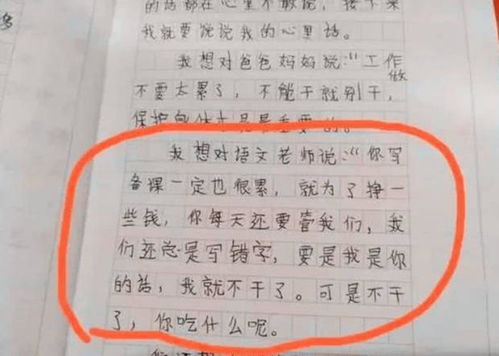 的话都在心里不敢说，接下来
我就要说说我的心里话。
我想对爸爸妈妈说："工作
不要太累了，不能干就别干，
做
保护身体才是最重要的。
我想对语文老师说："你写
备课一定也很累，就为了挣一
些钱，你每天还要管我们，我
们还总是写错字，要是我是你
的话，我就不干了。可是不干
了，你吃什么呢。